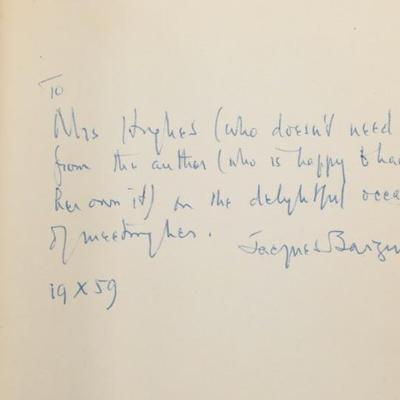 To
Mrs Hughes (who doesn't need
from the author (who is happy to ha
her own it) on the delightful occa
of meeting her. Jacques Barzu
19 X 59